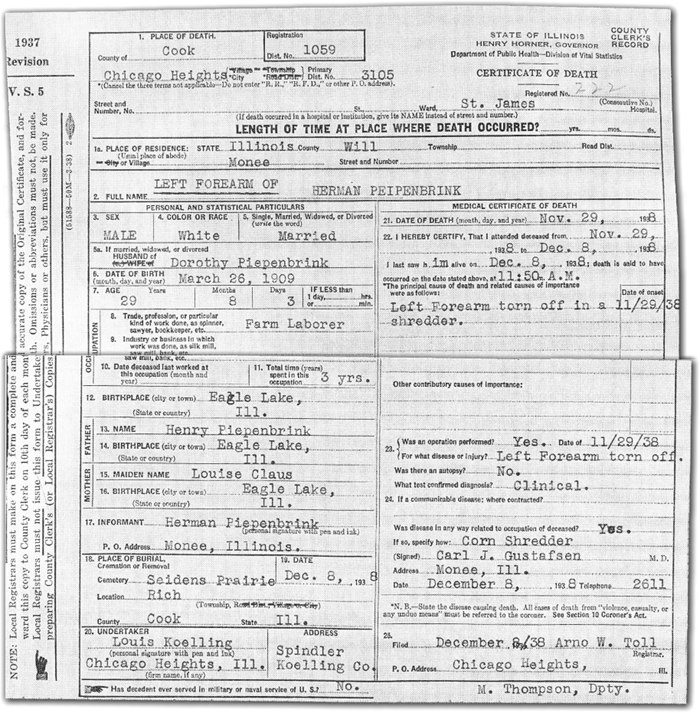 1937
Revision
V. S. 5
NOTE: Local Registrars must make on this form a complete and accurate copy of the Original Certificate, and for-
ward this copy to County Clerk on 10th day of each month. Omissions or abbreviations must not be made.
Local Registrars must not issue this form to Undertakers, Physicians or others, but must use it only for
preparing County Clerk's (or Local Registrar's) Copies
(51588—50M—3-38)
1. PLACE OF DEATH.
County of Cook
Registration
Dist. No. 1059
STATE OF ILLINOIS
HENRY HORNER, GOVERNOR
Department of Public Health—Division of Vital Statistics
COUNTY
CLERK'S
RECORD
Chicago Heights *Village Township
*City Road Dist. Primary
Dist. No. 3105
*(Cancel the three terms not applicable—Do not enter "R. R.," "R. F. D.," or other P. O. address).
CERTIFICATE OF DEATH
Registered No. 222
Street and
Number, No. St., Ward, St. James (Consecutive No.)
Hospital.
(If death occurred in a hospital or institution, give its NAME instead of street and number.)
LENGTH OF TIME AT PLACE WHERE DEATH OCCURRED? yrs. mos. ds.
1a. PLACE OF RESIDENCE: STATE Illinois County Will Township Road Dist.
(Usual place of abode)
City or Village Monee Street and Number
2. FULL NAME LEFT FOREARM OF HERMAN PEIPENBRINK
PERSONAL AND STATISTICAL PARTICULARS
3. SEX
MALE
4. COLOR OR RACE
White
5. Single, Married, Widowed, or Divorced
(write the word)
Married
5a. If married, widowed, or divorced
HUSBAND of
(or) WIFE of Dorothy Piepenbrink
6. DATE OF BIRTH
(month, day, and year) March 26, 1909
7. AGE Years Months Days IF LESS than
1 day, hrs.
or min.
29 8 3
OCCUPATION
8. Trade, profession, or particular
kind of work done, as spinner,
sawyer, bookkeeper, etc. Farm Laborer
9. Industry or business in which
work was done, as silk mill,
saw mill, bank, etc.
10. Date deceased last worked at
this occupation (month and
year)
11. Total time (years)
spent in this
occupation 3 yrs.
12. BIRTHPLACE (city or town) Eagle Lake,
(State or country) Ill.
FATHER
13. NAME Henry Piepenbrink
14. BIRTHPLACE (city or town) Eagle Lake,
(State or country) Ill.
MOTHER
15. MAIDEN NAME Louise Claus
16. BIRTHPLACE (city or town) Eagle Lake,
(State or country) Ill.
17. INFORMANT Herman Piepenbrink
(personal signature with pen and ink)
P. O. Address Monee, Illinois.
18. PLACE OF BURIAL,
Cremation or Removal
19. DATE
Cemetery Seidens Prairie Dec. 8, 1938
Location Rich
(Township, Road Dist., Village or City)
County Cook State Ill.
20. UNDERTAKER
Louis Koelling
(personal signature with pen and ink)
Chicago Heights, Ill.
(firm name, if any)
ADDRESS
Spindler
Koelling Co.
Has decedent ever served in military or naval service of U. S.? No.
MEDICAL CERTIFICATE OF DEATH
21. DATE OF DEATH (month, day, and year) Nov. 29, 1938
22. I HEREBY CERTIFY, That I attended deceased from Nov. 29,
1938, to Dec. 8, 1938
I last saw h im alive on Dec. 8, 1938; death is said to have
occurred on the date stated above, at 11:50 A.M.
*The principal cause of death and related causes of importance
were as follows:
Date of onset
Left Forearm torn off in a 11/29/38
shredder.
Other contributory causes of importance:
23. Was an operation performed? Yes. Date of 11/29/38
For what disease or injury? Left Forearm torn off.
Was there an autopsy? No.
What test confirmed diagnosis? Clinical.
24. If a communicable disease; where contracted?
Was disease in any way related to occupation of deceased? Yes.
If so, specify how: Corn Shredder
(Signed) Carl J. Gustafsen M. D.
Address Monee, Ill.
Date December 8, 1938 Telephone 2611
*N. B.—State the disease causing death. All cases of death from "violence, casualty, or
any undue means" must be referred to the coroner. See Section 10 Coroner's Act.
25.
Filed December 8/38 Arno W. Toll
Registrar.
P. O. Address Chicago Heights, Ill.
M. Thompson, Dpty.